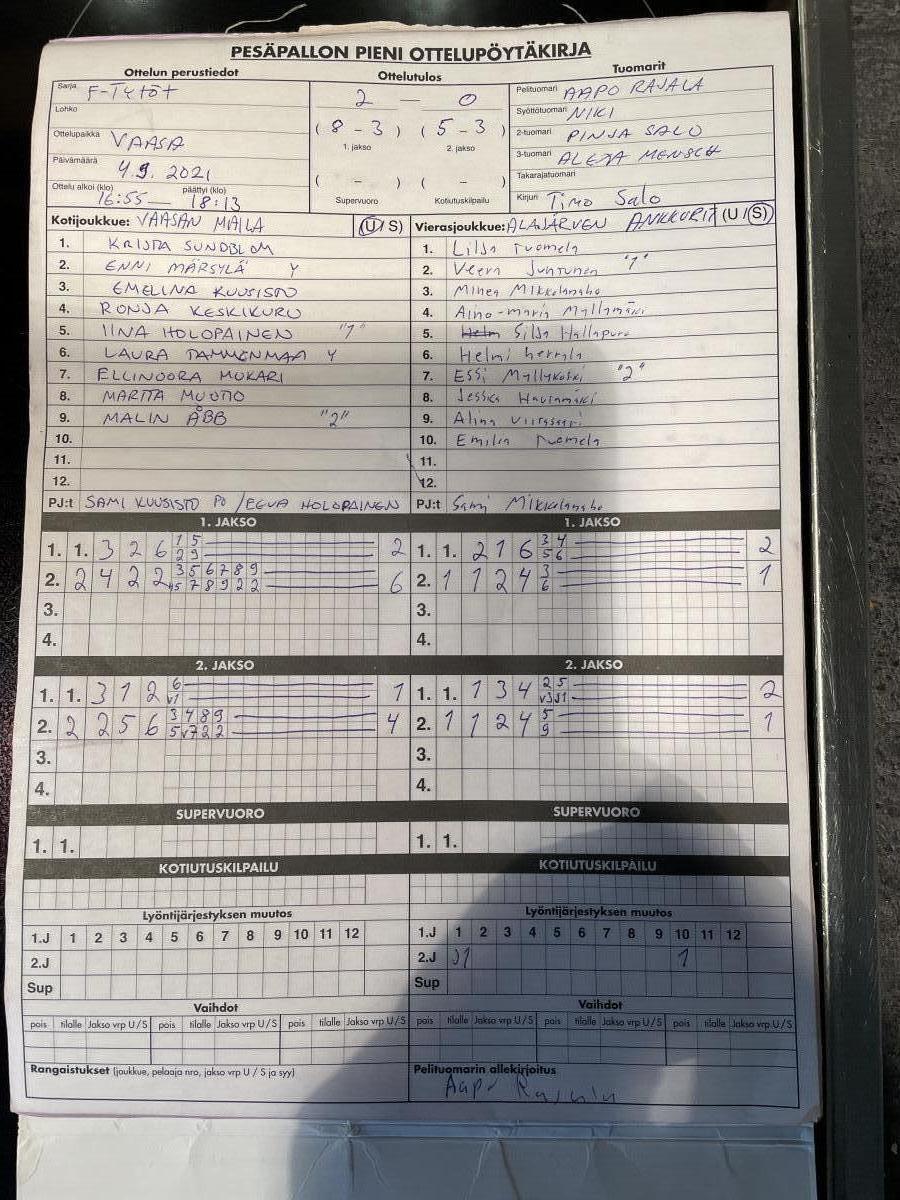 PESÄPALLON PIENI OTTELUPÖYTÄKIRJA
Ottelun perustiedot
Sarja F-Tytöt
Lohko
Ottelupaikka VAASA
Päivämäärä 4.9.2021
Ottelu alkoi (klo) päättyi (klo)
16:55 — 18:13
Ottelutulos
2 — 0
(8 - 3) (5 - 3)
1. jakso 2. jakso
( - ) ( - )
Supervuoro Kotiutuskilpailu
Tuomarit
Pelituomari AAPO RAJALA
Syöttötuomari NIKI
2-tuomari PINJA SALO
3-tuomari ALEXA MENSCH
Takarajatuomari
Kirjuri Timo Salo
Kotijoukkue: VAASAN MAILA (U/S)
1. KRISTA SUNDBLOM
2. ENNI MÄRSYLÄ Y
3. EMELINA KUUSISTO
4. RONJA KESKIKURU
5. IINA HOLOPAINEN "1"
6. LAURA TAMMENMAA Y
7. ELLINOORA MUKARI
8. MARTTA MUOTIO
9. MALIN ÅBB "2"
10.
11.
12.
PJ:t SAMI KUUSISTO PO / EEVA HOLOPAINEN
Vierasjoukkue: ALAJÄRVEN ANKKURIT (U/S)
1. Lilja Tuomela
2. Veera Juntunen "1"
3. Minea Mikkolanaho
4. Aino-maria Myllymäki
5. Helm Silja Hallapuro
6. Helmi herrala
7. Essi Myllykoski "2"
8. Jessica Hautamäki
9. Alina
10. Emilia Tuomela
11.
12.
PJ:t Sami Mikkolanaho
1. JAKSO
1. 1. 3 2 6 1 5 2
2 9
2. 2 4 2 2 3 5 6 7 8 9 6
5 7 8 9 2 2
3.
4.
1. JAKSO
1. 1. 2 1 6 3 4 2
5 6
2. 1 1 2 4 3 1
6
3.
4.
2. JAKSO
1. 1. 3 1 2 6 1
v1
2. 2 2 5 6 3 4 8 9 4
5 v7 2 2
3.
4.
2. JAKSO
1. 1. 1 3 4 2 5 2
v3J1
2. 1 1 2 4 5 1
9
3.
4.
SUPERVUORO
1. 1.
SUPERVUORO
1. 1.
KOTIUTUSKILPAILU
KOTIUTUSKILPAILU
Lyöntijärjestyksen muutos
1.J 1 2 3 4 5 6 7 8 9 10 11 12
2.J
Sup
Lyöntijärjestyksen muutos
1.J 1 2 3 4 5 6 7 8 9 10 11 12
2.J J1 1
Sup
Vaihdot
pois tilalle Jakso vrp U/S pois tilalle Jakso vrp U/S pois tilalle Jakso vrp U/S
Vaihdot
pois tilalle Jakso vrp U/S pois tilalle Jakso vrp U/S pois tilalle Jakso vrp U/S
Rangaistukset (joukkue, pelaaja nro, jakso vrp U / S ja syy)
Pelituomarin allekirjoitus
Aapo Rajala